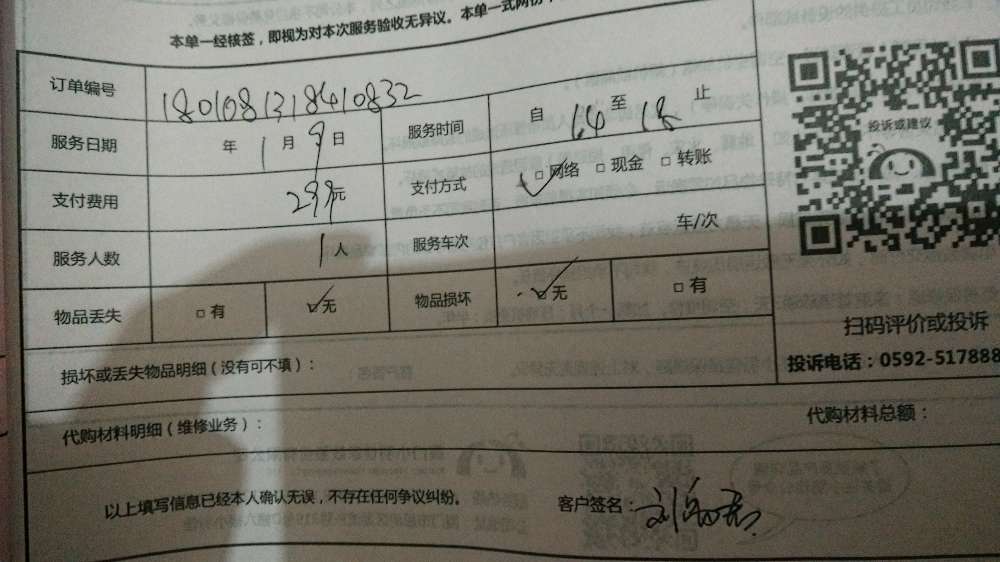 本单一经核签，即视为对本次服务验收无异议。本单一式两份
订单编号 180108131841083​2
服务日期 年 1 月 9 日 服务时间 自 14 至 18 止
支付费用 299元 支付方式 ☑网络 □现金 □转账
服务人数 1人 服务车次 车/次
物品丢失 □有 ☑无 物品损坏 ☑无 □有
投诉或建议
扫码评价或投诉
投诉电话：0592-517888
损坏或丢失物品明细（没有可不填）：
代购材料明细（维修业务）： 代购材料总额：
以上填写信息已经本人确认无误，不存在任何争议纠纷。 客户签名：